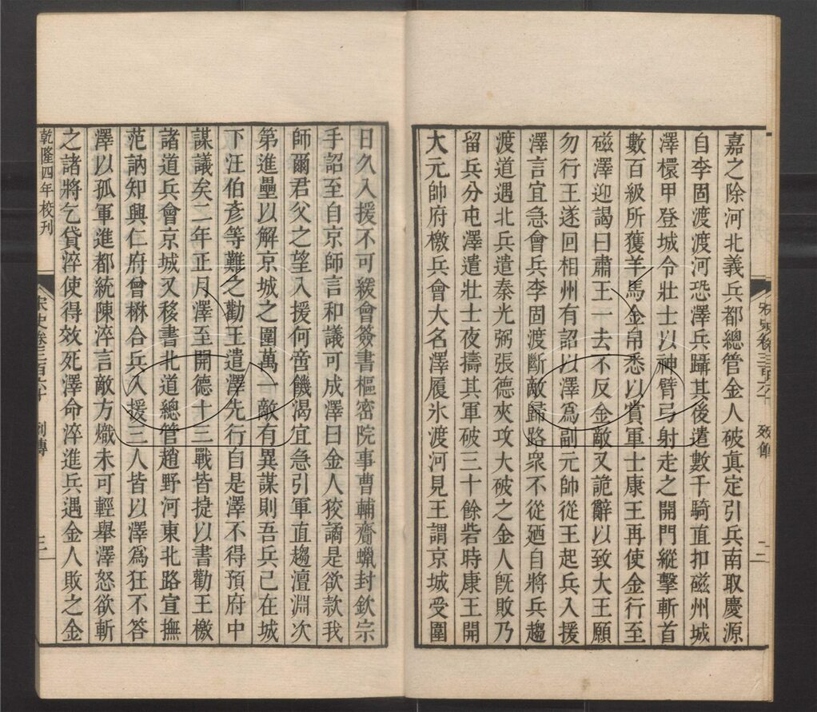 嘉之除河北義兵都總管金人破眞定引兵南取慶源
自李固渡渡河恐澤兵躡其後遣數千騎直扣磁州城
澤擐甲登城令壯士以神臂弓射走之開門縱擊斬首
數百級所獲羊馬金帛悉以賞軍士康王再使金行至
磁澤迎謁曰肅王一去不反金敵又詭辭以致大王願
勿行王遂回相州有詔以澤爲副元帥從王起兵入援
澤言宜急會兵李固渡斷敵歸路衆不從廼自將兵趨
渡道遇北兵遣秦光弼張德夾攻大破之金人旣敗乃
留兵分屯澤遣壯士夜擣其軍破三十餘砦時康王開
大元帥府檄兵會大名澤履氷渡河見王謂京城受圍
日久入援不可緩會簽書樞密院事曹輔齎蠟封欽宗
手詔至自京師言和議可成澤曰金人狡譎是欲款我
師爾君父之望入援何啻饑渴宜急引軍直趨澶淵次
第進壘以解京城之圍萬一敵有異謀則吾兵已在城
下汪伯彥等難之勸王遣澤先行自是澤不得預府中
謀議矣二年正月澤至開德十三戰皆捷以書勸王檄
諸道兵會京城又移書北道總管趙野河東北路宣撫
范訥知興仁府曾楙合兵入援三人皆以澤爲狂不答
澤以孤軍進都統陳淬言敵方熾未可輕舉澤怒欲斬
之諸將乞貸淬使得效死澤命淬進兵遇金人敗之金
乾隆四年校刊
宋史卷三百六十
列傳
三